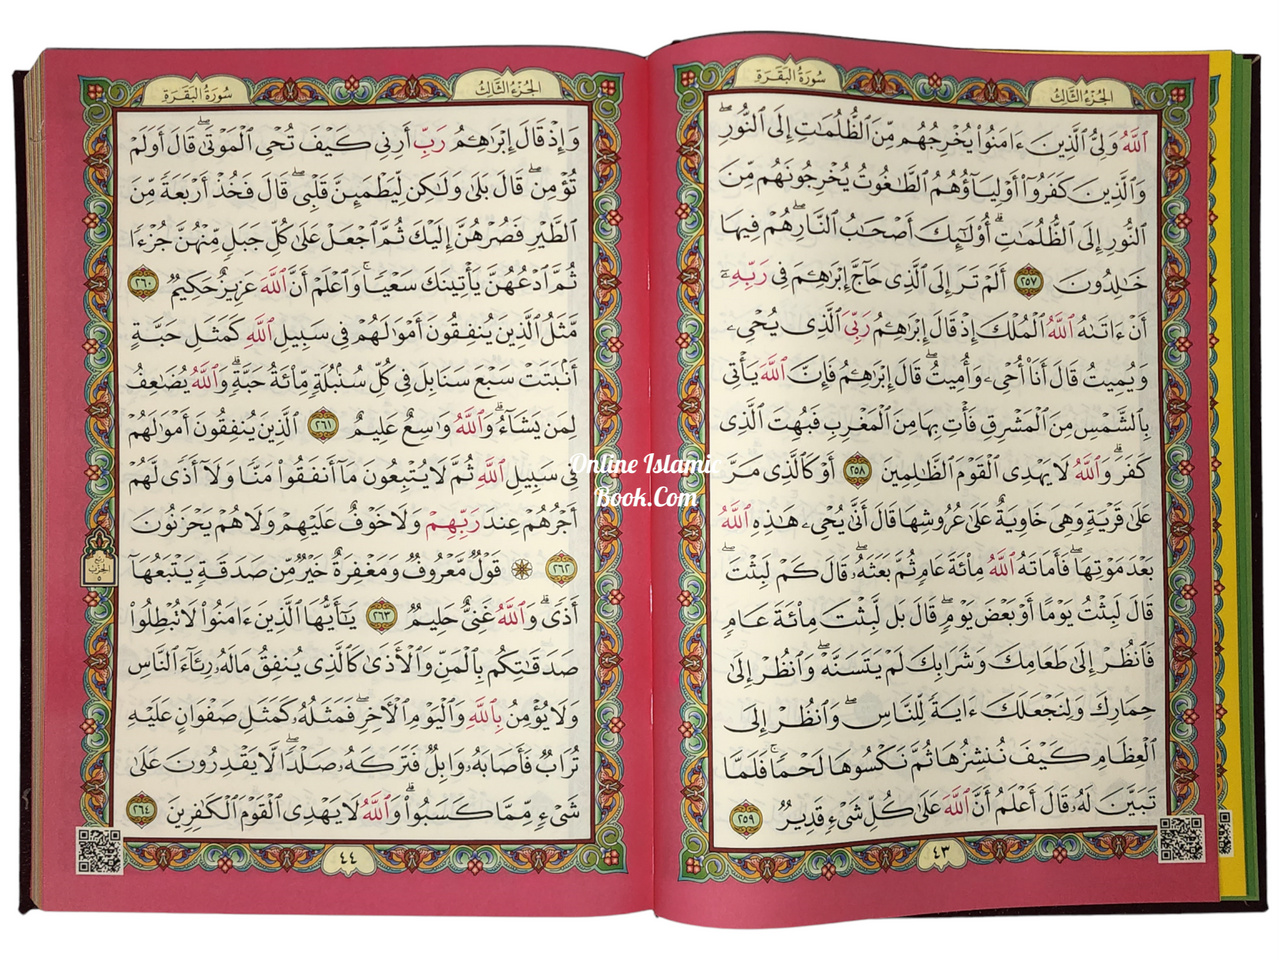 سُورَةُ البَقَرَةِ
الجُزْءُ الثَّالِثُ
ٱللَّهُ وَلِىُّ ٱلَّذِينَ ءَامَنُوا۟ يُخْرِجُهُم مِّنَ ٱلظُّلُمَـٰتِ إِلَى ٱلنُّورِ ۖ
وَٱلَّذِينَ كَفَرُوٓا۟ أَوْلِيَآؤُهُمُ ٱلطَّـٰغُوتُ يُخْرِجُونَهُم مِّنَ
ٱلنُّورِ إِلَى ٱلظُّلُمَـٰتِ ۗ أُو۟لَـٰٓئِكَ أَصْحَـٰبُ ٱلنَّارِ ۖ هُمْ فِيهَا
خَـٰلِدُونَ ٢٥٧ أَلَمْ تَرَ إِلَى ٱلَّذِى حَآجَّ إِبْرَٰهِـۧمَ فِى رَبِّهِۦٓ
أَنْ ءَاتَىٰهُ ٱللَّهُ ٱلْمُلْكَ إِذْ قَالَ إِبْرَٰهِـۧمُ رَبِّىَ ٱلَّذِى يُحْىِۦ
وَيُمِيتُ قَالَ أَنَا۠ أُحْىِۦ وَأُمِيتُ ۖ قَالَ إِبْرَٰهِـۧمُ فَإِنَّ ٱللَّهَ يَأْتِى
بِٱلشَّمْسِ مِنَ ٱلْمَشْرِقِ فَأْتِ بِهَا مِنَ ٱلْمَغْرِبِ فَبُهِتَ ٱلَّذِى
كَفَرَ ۗ وَٱللَّهُ لَا يَهْدِى ٱلْقَوْمَ ٱلظَّـٰلِمِينَ ٢٥٨ أَوْ كَٱلَّذِى مَرَّ
عَلَىٰ قَرْيَةٍ وَهِىَ خَاوِيَةٌ عَلَىٰ عُرُوشِهَا قَالَ أَنَّىٰ يُحْىِۦ هَـٰذِهِ ٱللَّهُ
بَعْدَ مَوْتِهَا ۖ فَأَمَاتَهُ ٱللَّهُ مِا۟ئَةَ عَامٍ ثُمَّ بَعَثَهُۥ ۖ قَالَ كَمْ لَبِثْتَ ۖ
قَالَ لَبِثْتُ يَوْمًا أَوْ بَعْضَ يَوْمٍ ۖ قَالَ بَل لَّبِثْتَ مِا۟ئَةَ عَامٍ
فَٱنظُرْ إِلَىٰ طَعَامِكَ وَشَرَابِكَ لَمْ يَتَسَنَّهْ ۖ وَٱنظُرْ إِلَىٰ
حِمَارِكَ وَلِنَجْعَلَكَ ءَايَةً لِّلنَّاسِ ۖ وَٱنظُرْ إِلَى
ٱلْعِظَامِ كَيْفَ نُنشِزُهَا ثُمَّ نَكْسُوهَا لَحْمًا ۚ فَلَمَّا
تَبَيَّنَ لَهُۥ قَالَ أَعْلَمُ أَنَّ ٱللَّهَ عَلَىٰ كُلِّ شَىْءٍ قَدِيرٌ ٢٥٩
٤٣
الجُزْءُ الثَّالِثُ
سُورَةُ البَقَرَةِ
وَإِذْ قَالَ إِبْرَٰهِـۧمُ رَبِّ أَرِنِى كَيْفَ تُحْىِ ٱلْمَوْتَىٰ ۖ قَالَ أَوَلَمْ
تُؤْمِن ۖ قَالَ بَلَىٰ وَلَـٰكِن لِّيَطْمَئِنَّ قَلْبِى ۖ قَالَ فَخُذْ أَرْبَعَةً مِّنَ
ٱلطَّيْرِ فَصُرْهُنَّ إِلَيْكَ ثُمَّ ٱجْعَلْ عَلَىٰ كُلِّ جَبَلٍ مِّنْهُنَّ جُزْءًا
ثُمَّ ٱدْعُهُنَّ يَأْتِينَكَ سَعْيًا ۚ وَٱعْلَمْ أَنَّ ٱللَّهَ عَزِيزٌ حَكِيمٌ ٢٦٠
مَّثَلُ ٱلَّذِينَ يُنفِقُونَ أَمْوَٰلَهُمْ فِى سَبِيلِ ٱللَّهِ كَمَثَلِ حَبَّةٍ
أَنۢبَتَتْ سَبْعَ سَنَابِلَ فِى كُلِّ سُنۢبُلَةٍ مِّا۟ئَةُ حَبَّةٍ ۗ وَٱللَّهُ يُضَـٰعِفُ
لِمَن يَشَآءُ ۗ وَٱللَّهُ وَٰسِعٌ عَلِيمٌ ٢٦١ ٱلَّذِينَ يُنفِقُونَ أَمْوَٰلَهُمْ
فِى سَبِيلِ ٱللَّهِ ثُمَّ لَا يُتْبِعُونَ مَآ أَنفَقُوا۟ مَنًّا وَلَآ أَذًى لَّهُمْ
أَجْرُهُمْ عِندَ رَبِّهِمْ وَلَا خَوْفٌ عَلَيْهِمْ وَلَا هُمْ يَحْزَنُونَ
٢٦٢ ۞ قَوْلٌ مَّعْرُوفٌ وَمَغْفِرَةٌ خَيْرٌ مِّن صَدَقَةٍ يَتْبَعُهَآ
أَذًى ۗ وَٱللَّهُ غَنِىٌّ حَلِيمٌ ٢٦٣ يَـٰٓأَيُّهَا ٱلَّذِينَ ءَامَنُوا۟ لَا تُبْطِلُوا۟
صَدَقَـٰتِكُم بِٱلْمَنِّ وَٱلْأَذَىٰ كَٱلَّذِى يُنفِقُ مَالَهُۥ رِئَآءَ ٱلنَّاسِ
وَلَا يُؤْمِنُ بِٱللَّهِ وَٱلْيَوْمِ ٱلْـَٔاخِرِ ۖ فَمَثَلُهُۥ كَمَثَلِ صَفْوَانٍ عَلَيْهِ
تُرَابٌ فَأَصَابَهُۥ وَابِلٌ فَتَرَكَهُۥ صَلْدًا ۖ لَّا يَقْدِرُونَ عَلَىٰ
شَىْءٍ مِّمَّا كَسَبُوا۟ ۗ وَٱللَّهُ لَا يَهْدِى ٱلْقَوْمَ ٱلْكَـٰفِرِينَ ٢٦٤
٤٤
Online Islamic
Book.Com